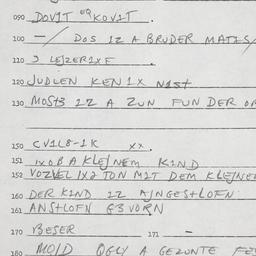 090 DOVIT EQ KOVIT.
100 —/ DOS IZ A BRUDER MATIS/
110 J LEJZERIXF
120 JUDLEN KEN IX NIST
130 MOST3 IZ A ZUN FUN DER OR
150 CVILB-IK XX.
151 IXOB A KLEJNEM KIND
152 VOZVEL IX2 TON MIT DEM KLEJNE
160 DER KIND IZ AJNGESTLOFN
161 ANSTLOFN G3VORN
170 BESER 171 —
180 MOID OGLY A GEZUNTE FE